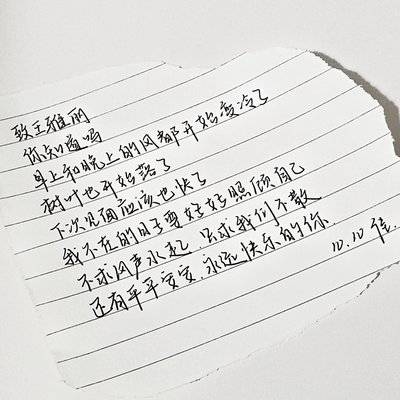 致王雅丽
你知道吗
早上和晚上的风都开始变冷了
树叶也开始落了
下次见面应该也快了
我不在的日子要好好照顾自己
不求风声水起、只求我们不散
还有平平安安、永远快乐的你
10.10 佳.